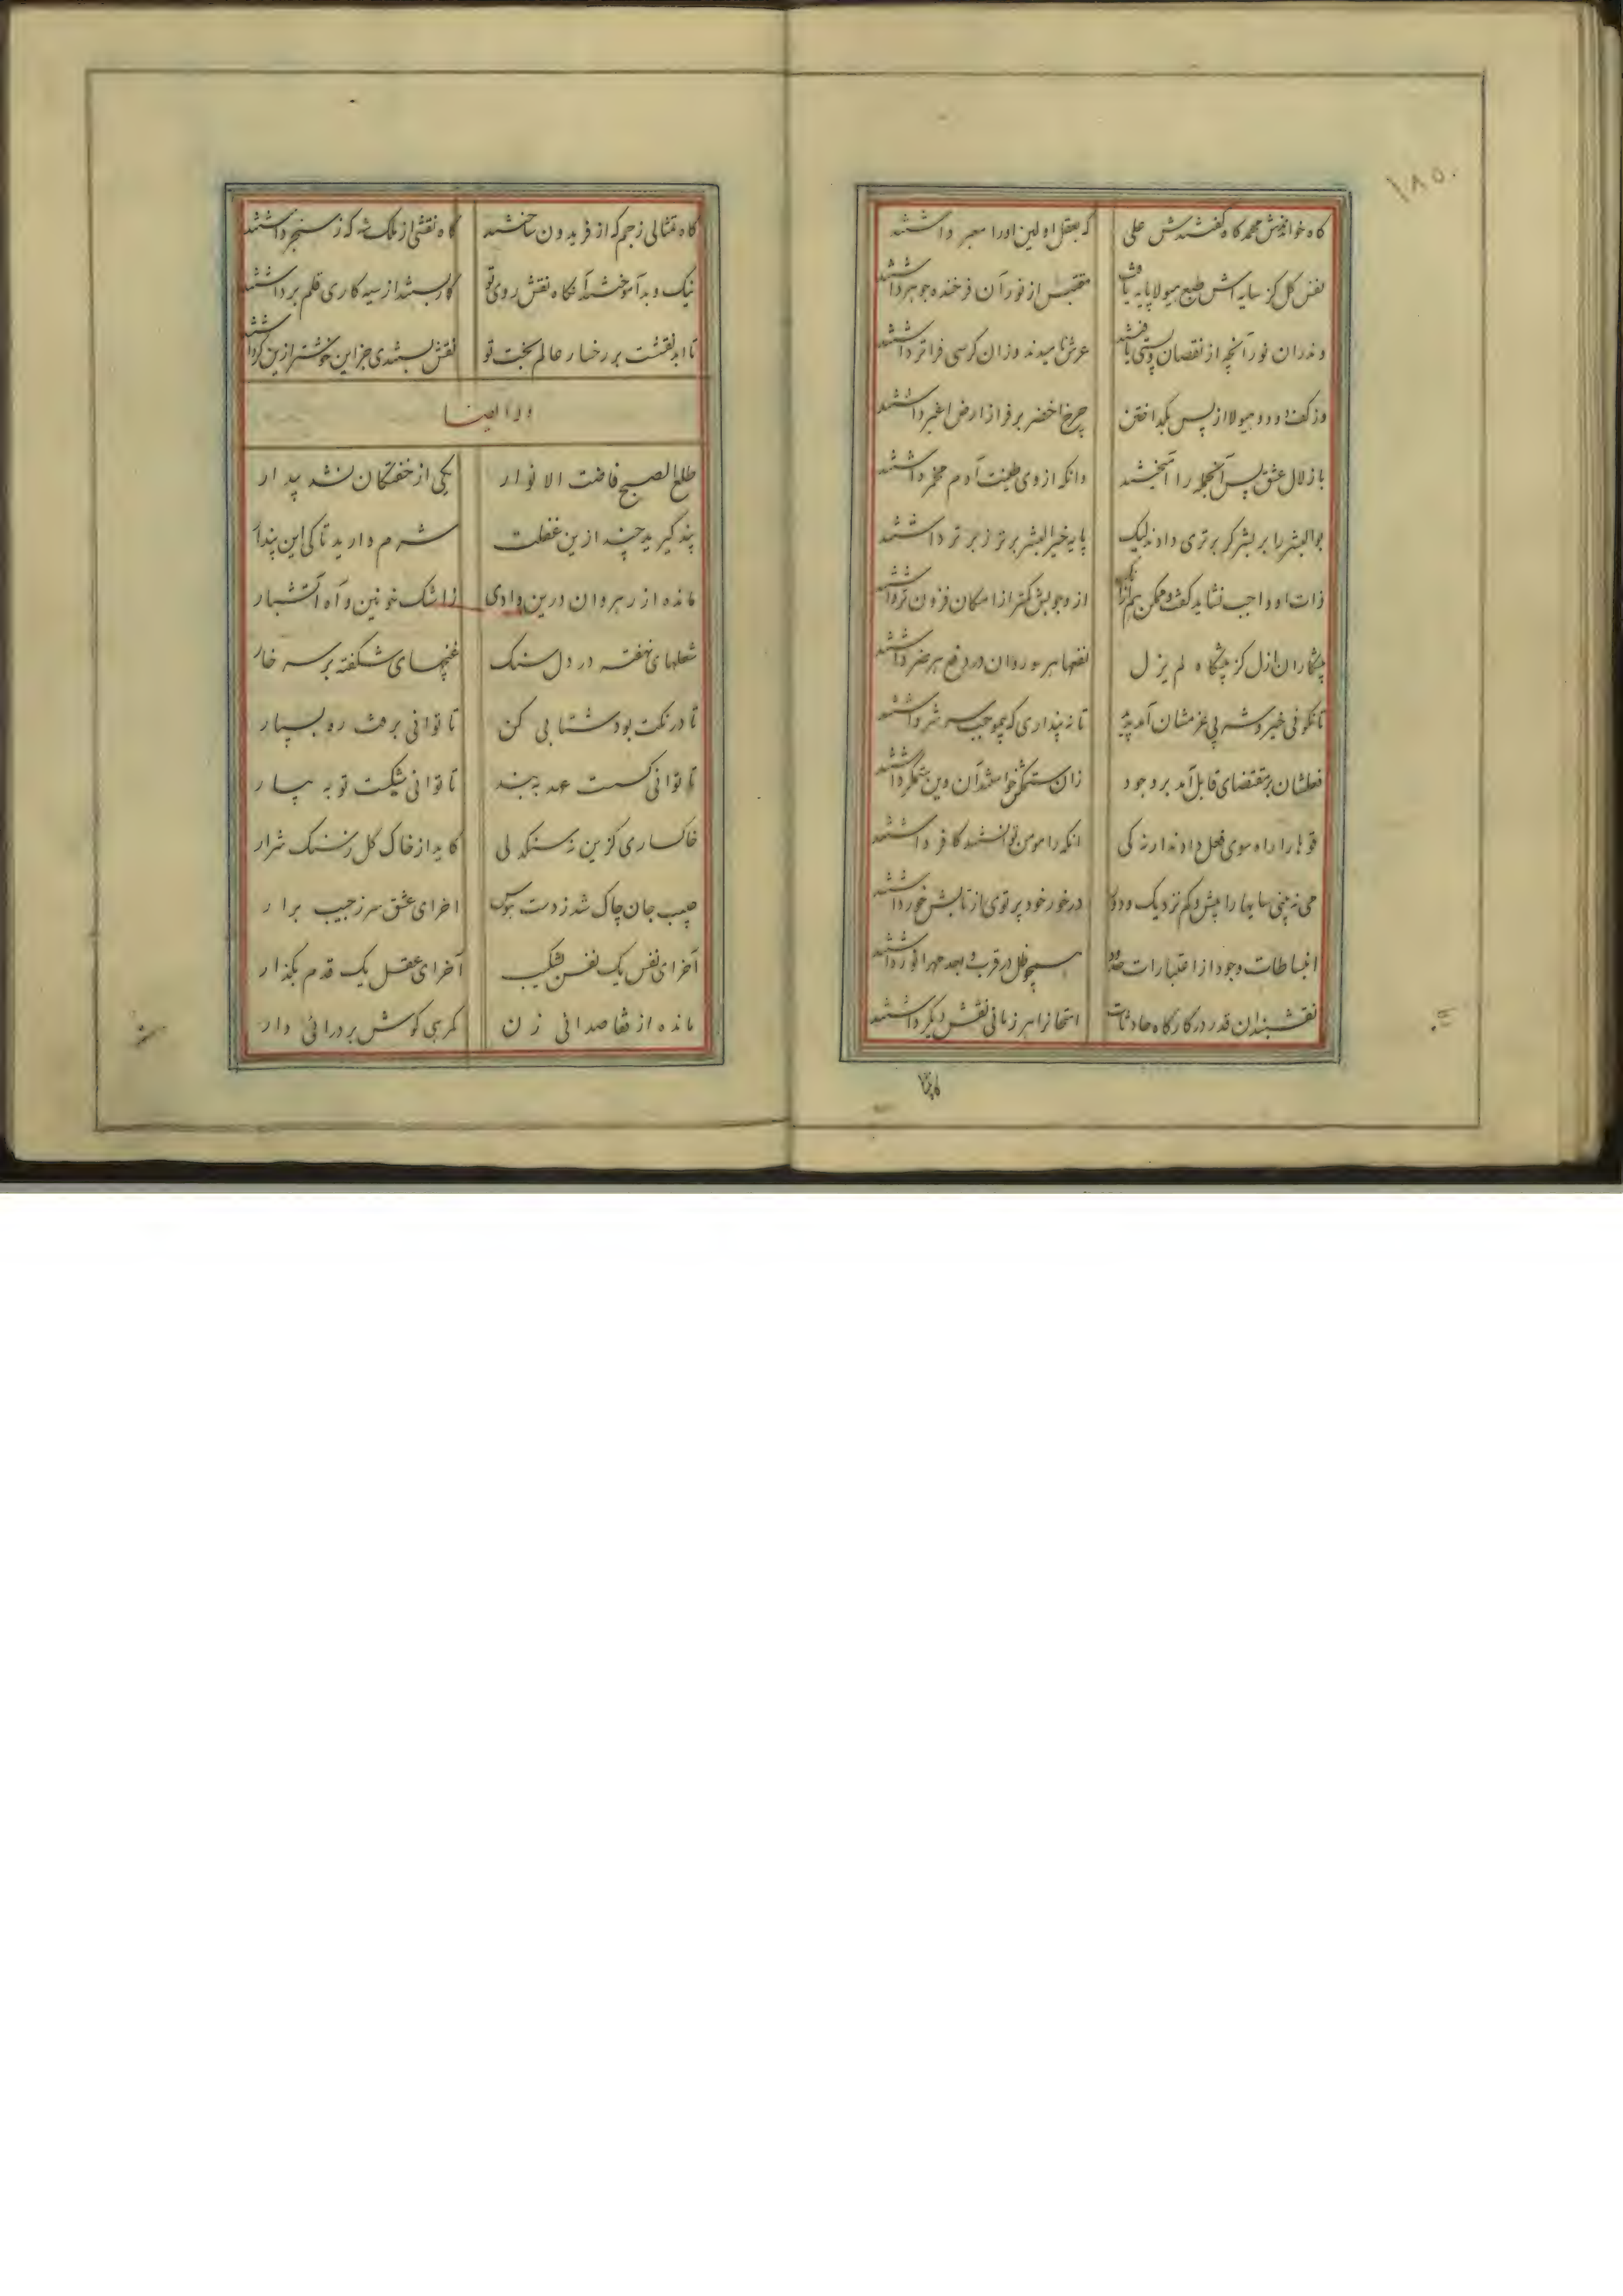 ۱۸۵۰
گاه خواندندش محمد گاه گفتندش علی
گه بعقل اولین اورا معبر داشتند
نفس کل کز سایه اش طبع هیولا پایه یافت
مقتبس از نور آن فرخنده جوهر داشتند
وندران نور آنچه از نقصان و پستی یافتند
عرش نامیدند وزان کرسی فراتر داشتند
وز کف و دود هیولا از پس بگداختن
چرخ اخضر بر فراز ارض اغبر داشتند
با زلال عشق پس آنجمله را آمیختند
وانگه از وی طینت آدم مخمر داشتند
بوالبشر را بر بشر گر برتری دادند لیک
پایه خیر البشر برتر ز برتر داشتند
ذات او واجب نشاید گفت و ممکن هم
از وجوبش کمتر از امکان فزون تر داشتند
ازل کز لم یزل
نفعها هر سو روان در دفع هر ضر داشتند
تا نگوئی خیر و شر بی عزمشان آمد پدید
تا نه پنداری که بیموجب سر شر داشتند
فعلشان بر مقتضای قابل آمد بر وجود
زان ستمکش خواستند آن وین ستمگر داشتند
قوه ها را راه سوی فعل دادند ارنه کی
آنکه را مومن توانستند کافر داشتند
می نه بینی سایها را بیش و کم نزدیک و دور
در خور خود پرتوی از تابش خور داشتند
انبساطات وجود از اعتبارات حدود
همچو ظل در قرب و بعد مهر انور داشتند
نقشبندان قدر در کارگاه حادثات
امتحانرا هر زمانی نقش دیگر داشتند
گاه تمثالی ز جم گه از فریدون ساختند
گاه نقشی از ملک شه گه ز سنجر داشتند
نیک و بد آموختند آنگاه نقش روی تو
کار بستند از سیه کاری قلم برداشتند
تا ابد نقشت بر رخسار عالم بخت تو
نقش بستندی جز این خوشتر ازین گر داشتند
وله ایضا
طلع الصبح فاضت الانوار
یکی از خفتگان نشد بیدار
پند گیرید چند ازین غفلت
شرم دارید تا کی این پندار
مانده از رهروان درین وادی
ز اشک خونین و آه آتشبار
شعلهای نهفته در دل سنگ
غنچهای شکفته بر سر خار
تا درنگت بود شتابی کن
تا توانی برفت ره بسپار
تا توانی گسست عهد به بند
تا توانی شکست توبه بیار
خاکساری گزین نه سنگدلی
کاید از خاک گل ز سنگ شرار
جیب جان چاک شد ز دست هوس
اخر ای عشق سر ز جیب برآر
آخر ای نفس یک نفس بشکیب
آخر ای عقل یک قدم بگذار
مانده از مقاصد انی زن
گمرهی گوش بر درائی دار
گاه تمثا